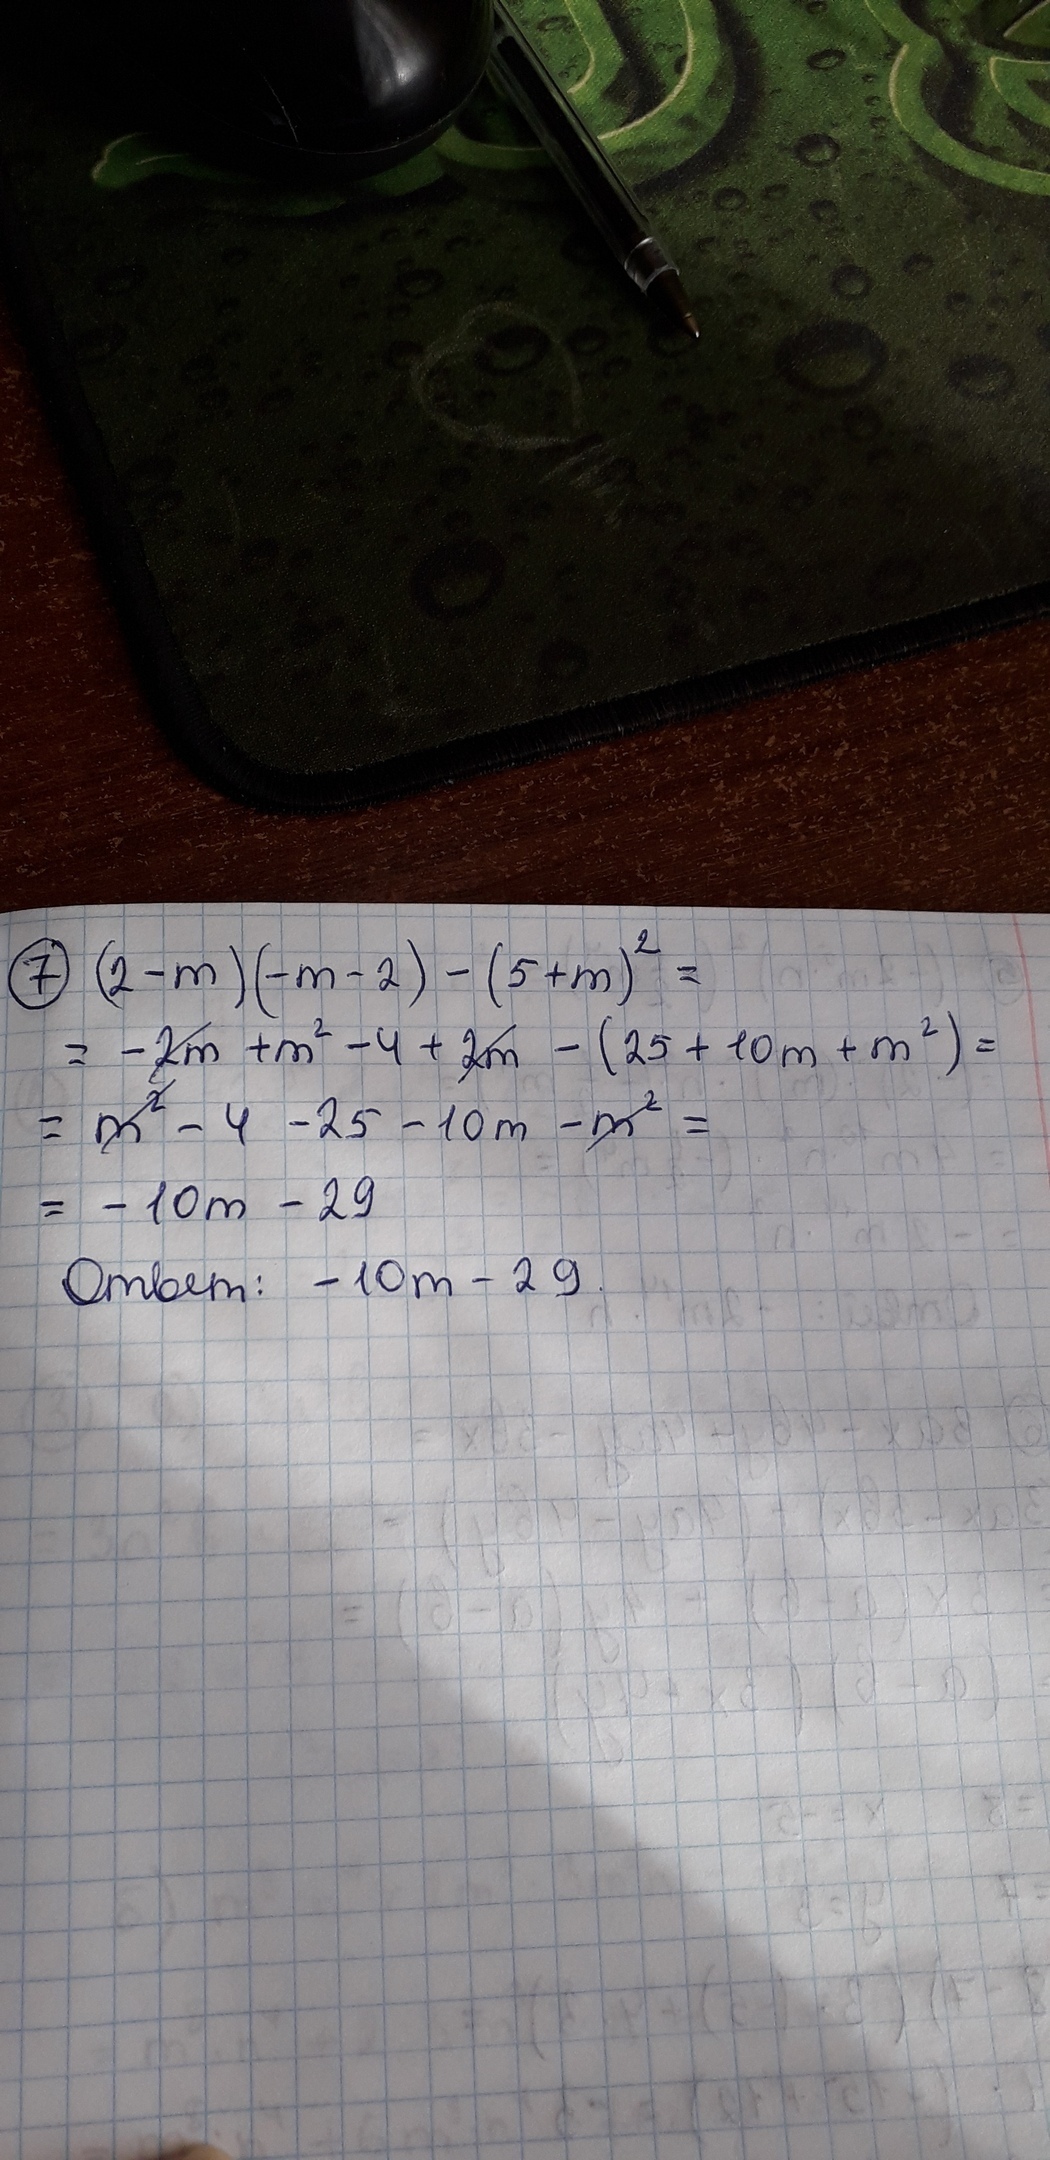 7 (2-m)(-m-2)-(5+m)²=
= -2m +m² -4 + 2m - (25+10m+m²)=
= m² - 4 -25 -10m -m² =
= -10m - 29
Ответ: -10m - 29.